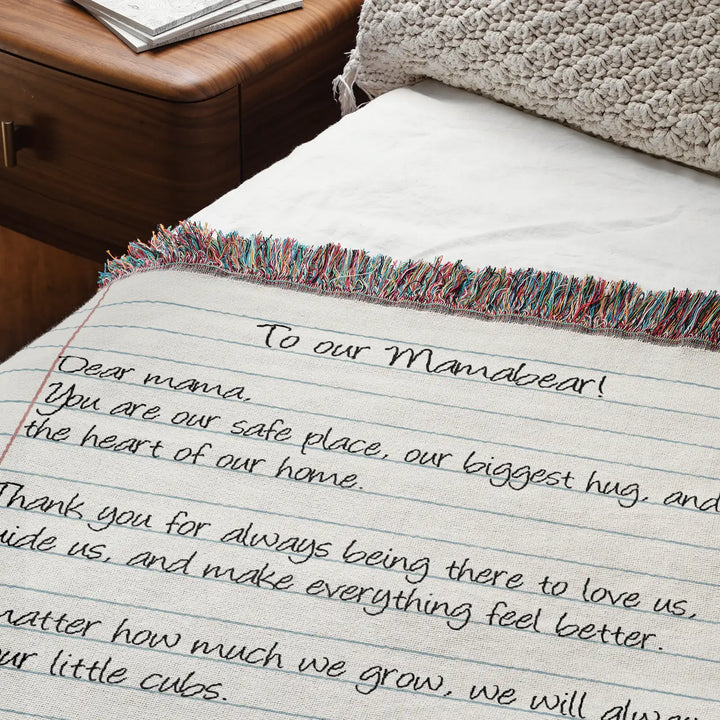 To our Mamabear!
Dear mama,
You are our safe place, our biggest hug, and
the heart of our home.
Thank you for always being there to love us,
us, and make everything feel better.
how much we grow, we will
little cubs.